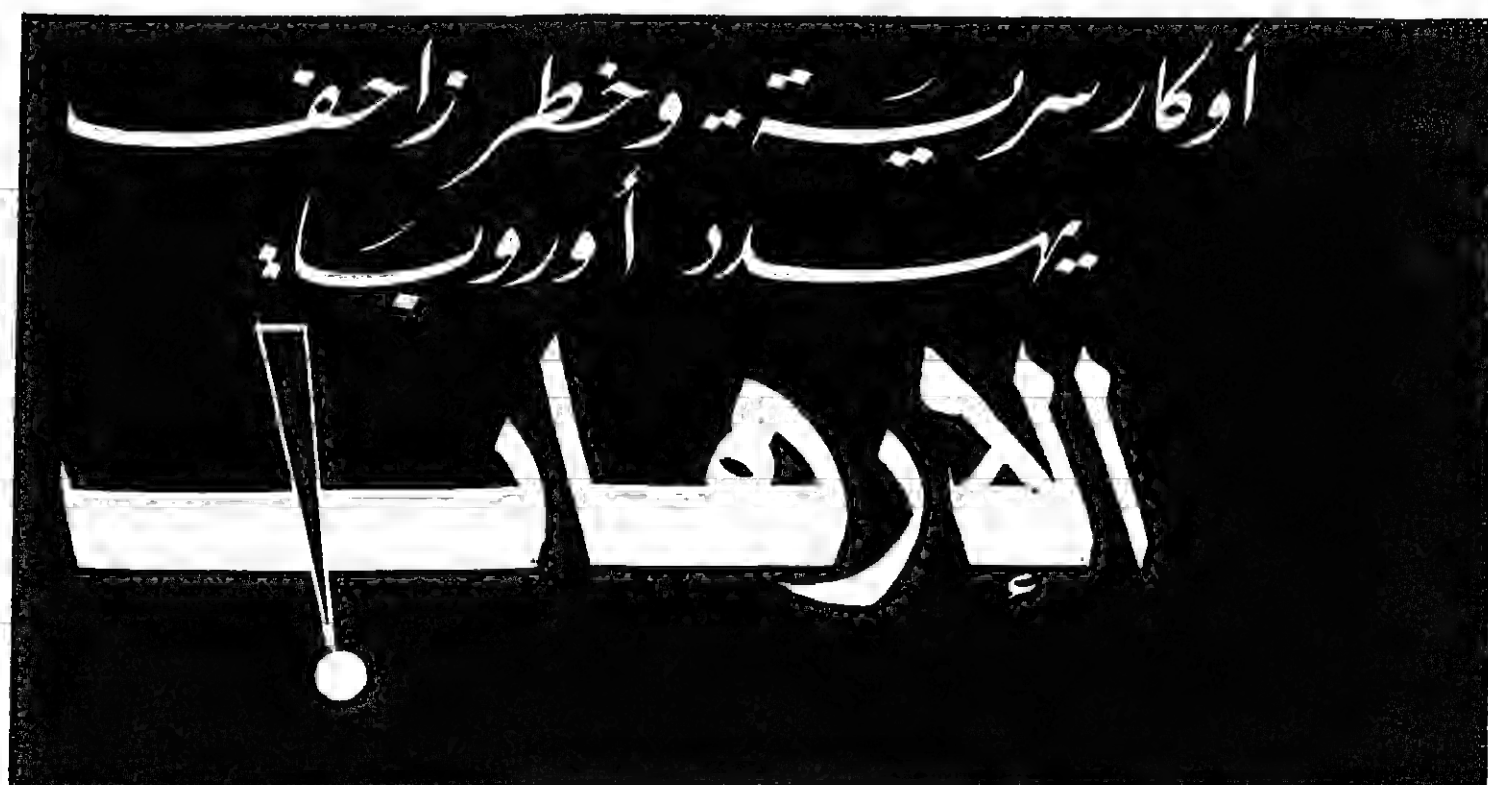 أوكار سرية .. وخطر زاحف
يهدد أوروبا:
الإرهاب!